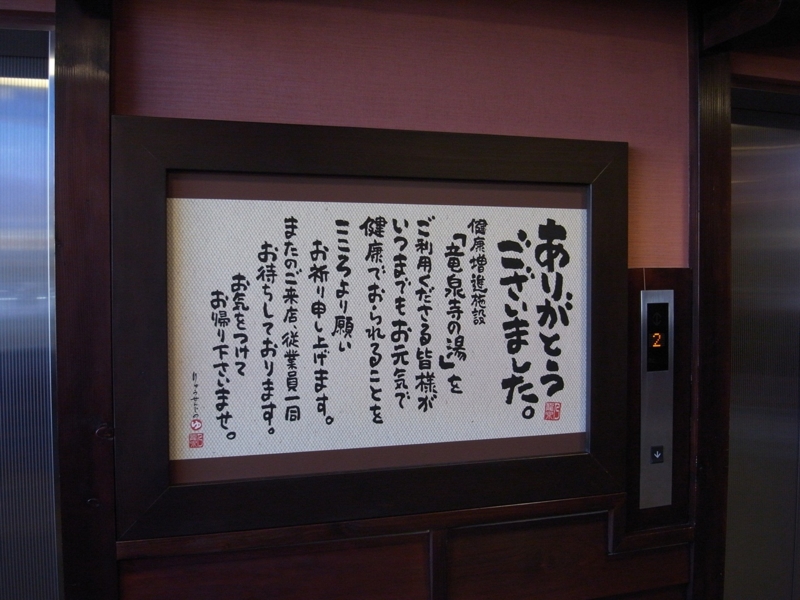 ありがとう
ございました。
健康増進施設
「竜泉寺の湯」を
ご利用くださる皆様が
いつまでもお元気で
健康でおられることを
こころより願い
お祈り申し上げます。
またのご来店、従業員一同
お待ちしております。
お気をつけて
お帰り下さいませ。
りゅうせんじのゆ
2